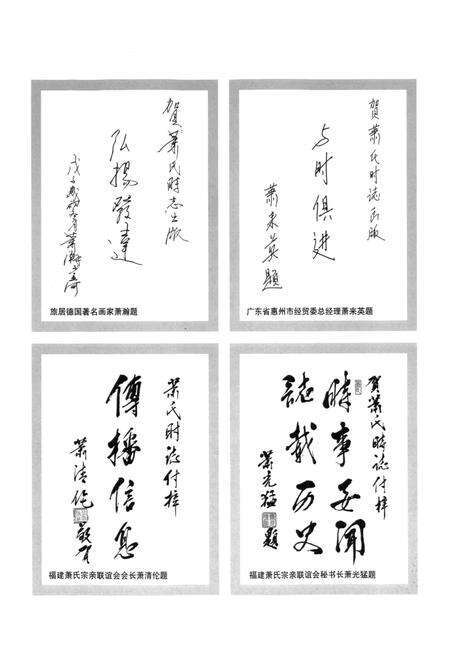 贺萧氏时志出版
弘扬發達
旅居德国著名画家萧瀚题
贺萧氏时誌出版
与时俱进
萧来英題
广东省惠州市经贸委总经理萧来英题
萧氏时誌付梓
傳播信息
萧清伦
敬贺
福建萧氏宗亲联谊会会长萧清伦题
贺萧氏時誌付梓
時事要聞
誌載历史
萧光猛
題
福建萧氏宗亲联谊会秘书长萧光猛题